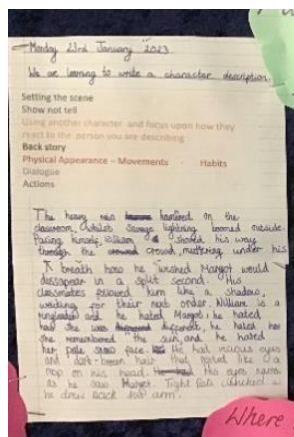 Monday 23rd January 2023
We are learning to write a character description.
Setting the scene
Show not tell
Using another character and focus upon how they
react to the person you are describing
Back story
Physical Appearance – Movements - Habits
Dialogue
Actions
The heavy rain hammered on the
classroom, whilst savage lightning boomed outside.
Pacing himself, William shoved his way
through the crowd, muttering under his
breath how he wished Margot would
dissapear in a split second. His
classmates followed him like a shadow,
waiting for their next order. William is a
ringleader and he hated Margot: he hated
how she was different, he hated how
she remembered the sun, and he hated
her pale face. He had vicious eyes
and dark-brown hair that rested like a
mop on his head. His eyes
as he saw Margot. Tight fists clenched as
he drew back his arm.
Where